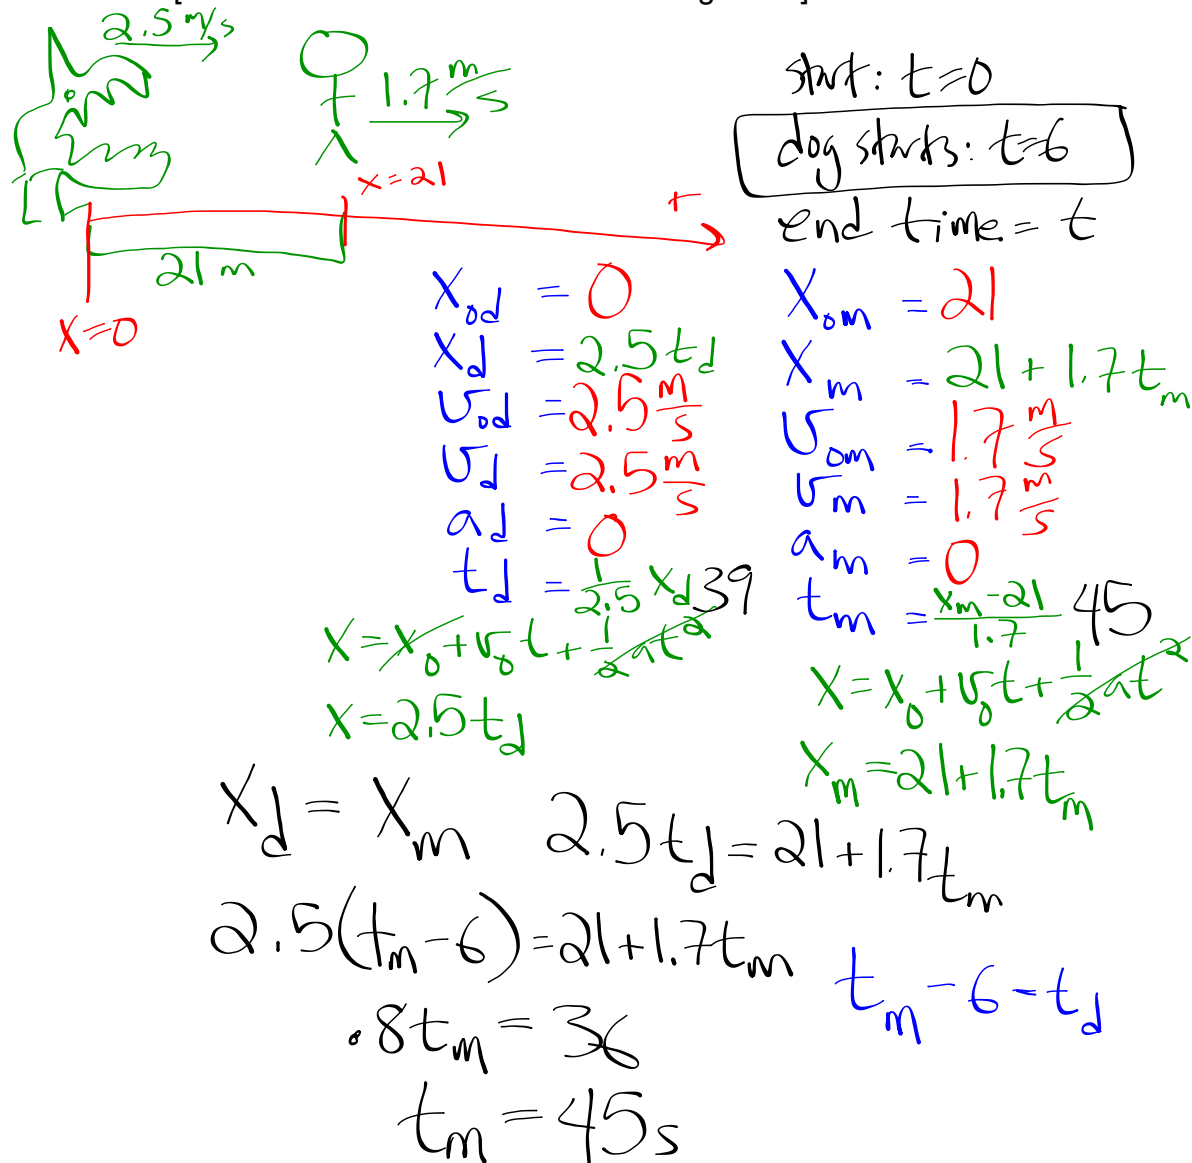 2.5 m/s
1.7 m/s
start: t=0
dog starts: t=6
end time = t
x=21
+
21 m
x=0
x_od = 0
x_d = 2.5t_d
v_od = 2.5 m/s
v_d = 2.5 m/s
a_d = 0
t_d = 1/2.5 x_d 39
x = x_0 + v_0 t + 1/2 at^2
x = 2.5t_d
x_om = 21
x_m = 21 + 1.7t_m
v_om = 1.7 m/s
v_m = 1.7 m/s
a_m = 0
t_m = x_m-21/1.7 45
x = x_0 + v_0 t + 1/2 at^2
x_m = 21+1.7t_m
x_d = x_m 2.5t_d = 21+1.7t_m
2.5(t_m-6)=21+1.7t_m
t_m - 6 = t_d
.8t_m = 36
t_m = 45s